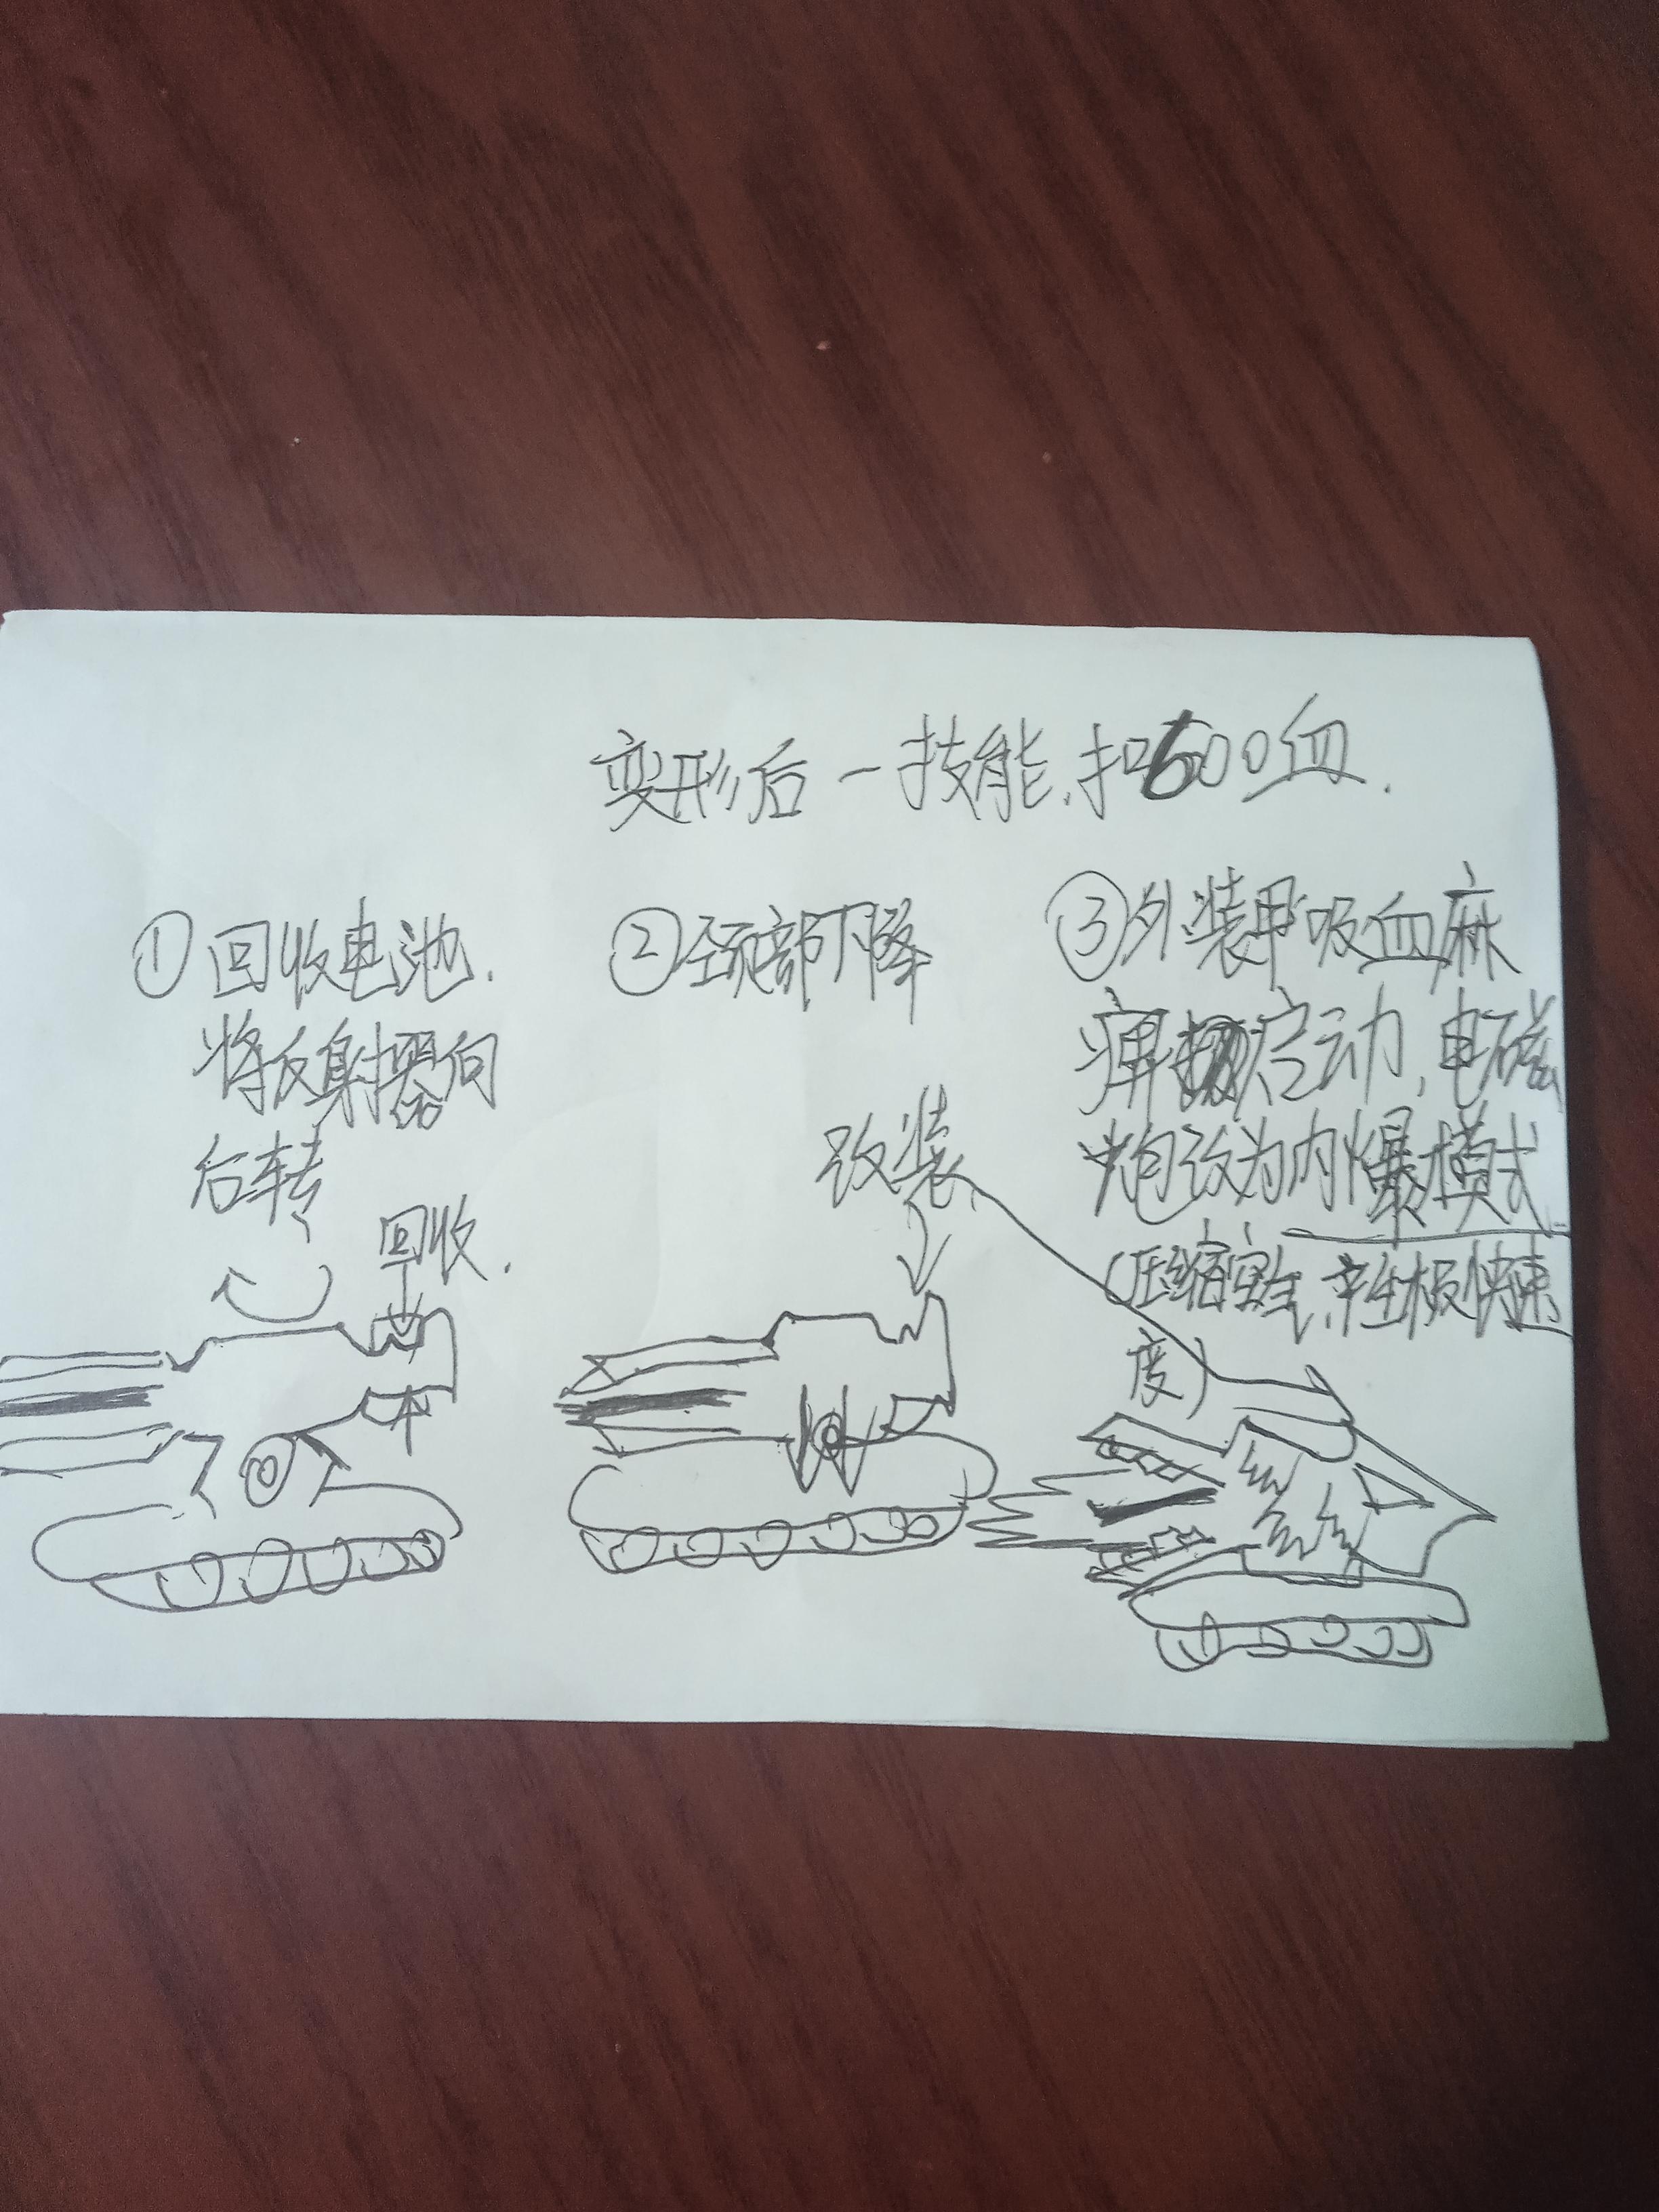 变形后一技能,扣600血.
①回收电池.
将反射器向
后转
回收.
②颈部下降
改装
③外装甲吸血麻
痹启动,电磁
炮改为内爆模式
(压缩室,产生极快速
度)